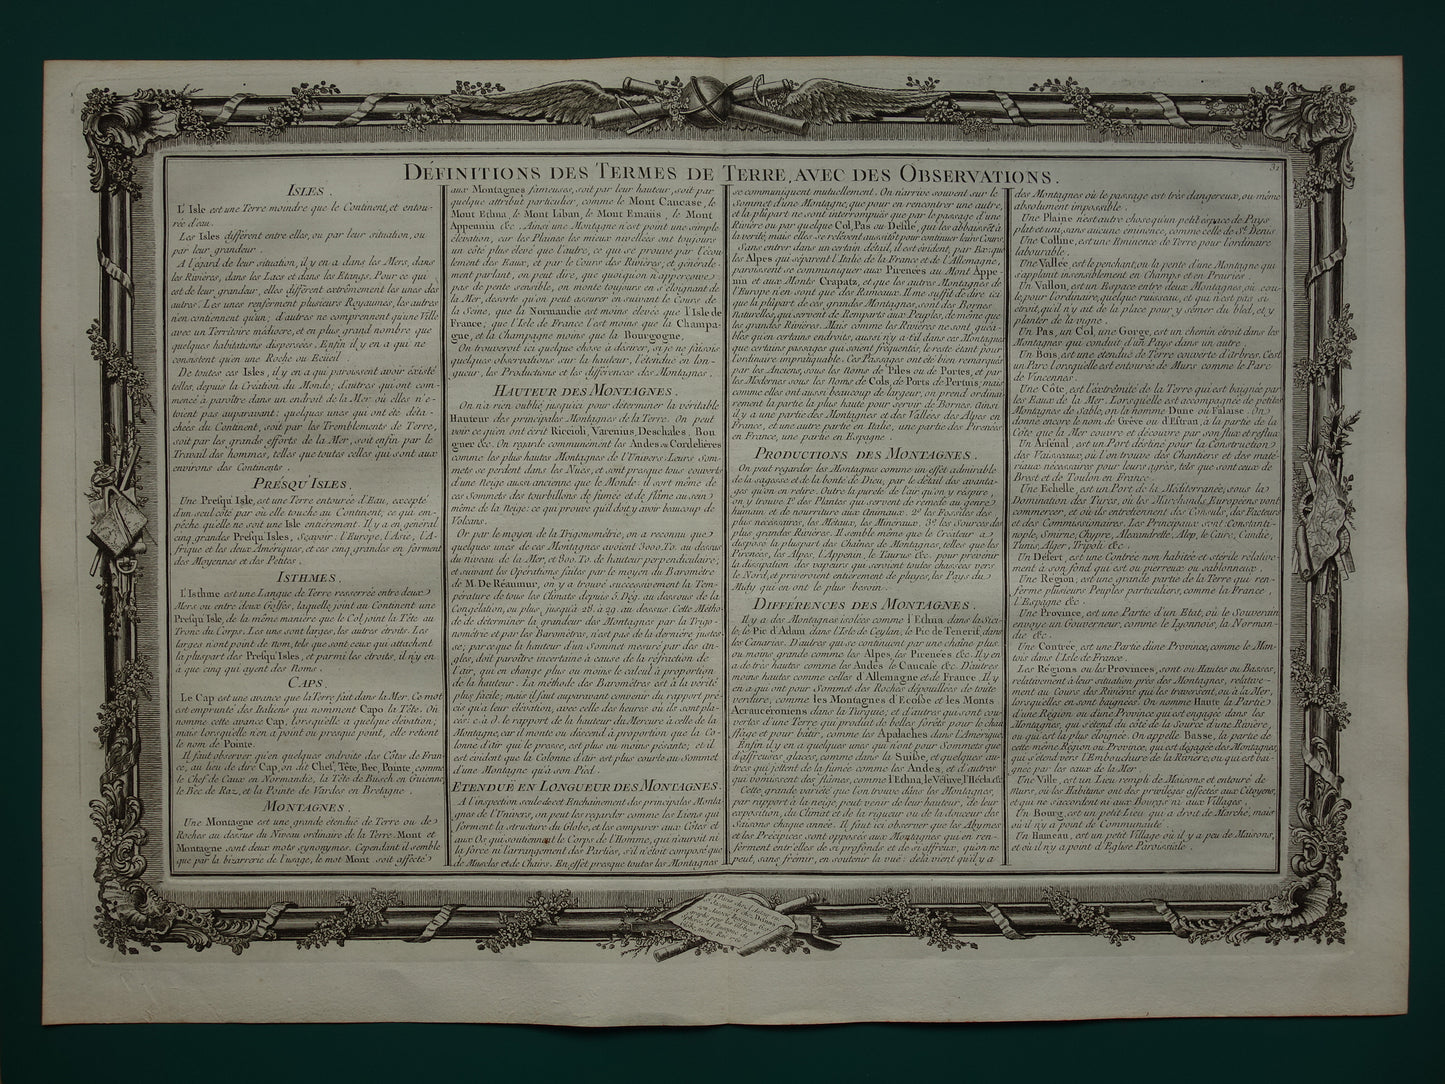 31
DÉFINITIONS DES TERMES DE TERRE, AVEC DES OBSERVATIONS.
ISLES.
L'Isle est une Terre moindre que le Continent, et entou-
rée d'eau.
Les Isles diffèrent entre elles, ou par leur situation, ou
par leur grandeur.
A l'égard de leur situation, il y en a dans les Mers, dans
les Rivières, dans les Lacs et dans les Etangs. Pour ce qui
est de leur grandeur, elles diffèrent extrêmement les unes des
autres. Les unes renferment plusieurs Royaumes, les autres
n'en contiennent qu'un; d'autres ne comprennent qu'une Ville
avec un Territoire médiocre, et en plus grand nombre que
quelques habitations dispersées. Enfin il y en a qui ne
consistent qu'en une Roche ou Ecueil.
De toutes ces Isles, il y en a qui paroissent avoir éxisté
telles, depuis la Création du Monde; d'autres qui ont com-
mencé à paroître dans un endroit de la Mer où elles n'e-
toient pas auparavant: quelques unes qui ont été déta-
chées du Continent, soit par les Tremblements de Terre,
soit par les grands efforts de la Mer, soit enfin par le
Travail des hommes, telles que toutes celles qui sont aux
environs des Continents.
PRESQU'ISLES.
Une Presqu'Isle, est une Terre entourée d'Eau, excepté
d'un seul côté par où elle touche au Continent, ce qui em-
pêche qu'elle ne soit une Isle entièrement. Il y a en général
cinq grandes Presqu'Isles, Sçavoir: l'Europe, l'Asie, l'A-
frique et les deux Amériques, et ces cinq grandes en forment
des Moyennes et des Petites.
ISTHMES.
L'Isthme est une Langue de Terre resserrée entre deux
Mers ou entre deux Golfes, laquelle joint au Continent une
Presqu'Isle, de la même manière que le Col joint la Tête au
Tronc du Corps. Les uns sont larges, les autres étroits. Les
larges n'ont point de nom, tels que sont ceux qui attachent
la plus part des Presqu'Isles, et parmi les étroits, il n'y en
a que cinq qui ayent des Noms.
CAPS.
Le Cap est une avance que la Terre fait dans la Mer. Ce mot
est emprunté des Italiens qui nomment Capo la Tête. On
nomme cette avance Cap, lorsqu'elle a quelque élévation;
mais lorsqu'elle n'en a point ou presque point, elle retient
le nom de Pointe.
Il faut observer qu'en quelques endroits des Côtes de Fran-
ce, au lieu de dire Cap, on dit Chef, Tête, Bec, Pointe, comme
le Chef de Caux en Normandie, la Tête de Busch en Guienne,
le Bec de Raz, et la Pointe de Vardes en Bretagne.
MONTAGNES.
Une Montagne est une grande étendue de Terre ou de
Roches au dessus du Niveau ordinaire de la Terre. Mont et
Montagne sont deux mots synonymes. Cependant il semble
que par la bizarrerie de l'usage, le mot Mont soit affecté
aux Montagnes fameuses, soit par leur hauteur, soit par
quelque attribut particulier, comme le Mont Caucase, le
Mont Ethna, le Mont Liban, le Mont Emaüs, le Mont
Appennin &c. Ainsi une Montagne n'est point une simple
élévation, car les Plaines les mieux nivellées ont toujours
un côté plus élevé que l'autre, ce qui se prouve par l'écou-
lement des Eaux, et par le Cours des Rivières; et générale-
ment parlant, on peut dire, que quoiqu'on n'apperçoive
pas de pente sensible, on monte toujours en s'éloignant de
la Mer, desorte qu'on peut assurer en suivant le Cours de
la Seine, que la Normandie est moins élevée que l'Isle de
France, que l'Isle de France l'est moins que la Champa-
gne, et la Champagne moins que la Bourgogne.
On trouveroit ici quelque chose à désirer, si je ne faisois
quelques observations sur la hauteur, l'étendue en lon-
gueur, les Productions et les différences des Montagnes.
HAUTEUR DES MONTAGNES.
On n'a rien oublié jusqu'ici pour déterminer la véritable
Hauteur des principales Montagnes de la Terre. On peut
voir ce qu'en ont écrit Riccioli, Varenius, Deschales, Bou
guer &c. On regarde communément les Andes ou Cordelières
comme les plus hautes Montagnes de l'Univers: Leurs Som-
mets se perdent dans les Nües, et sont presque tous couverts
d'une Neige aussi ancienne que le Monde: il sort même de
ces Sommets des tourbillons de fumée et de flâme au sein
même de la Neige: ce qui prouve qu'il doit y avoir beaucoup de
Volcans.
Or par le moyen de la Trigonométrie, on a reconnu que
quelques unes de ces Montagnes avoient 3000 To. au dessus
du niveau de la Mer, et 800 To. de hauteur perpendiculaire;
et suivant les Opérations faites par le moyen du Baromètre
de M. De Réaumur, on y a trouvé successivement la Tem-
pérature de tous les Climats depuis 5. Deg. au dessous de la
Congélation, ou plus, jusqu'à 28. à 29. au dessus. Cette Métho-
de de déterminer la grandeur des Montagnes par la Trigo-
nométrie et par les Baromètres, n'est pas de la dernière justes-
se; parce que la hauteur d'un Sommet mesuré par des an-
gles, doit paroître incertaine à cause de la réfraction de
l'air, qui en change plus ou moins le calcul à proportion
de la hauteur. La méthode des Baromètres est à la vérité
plus facile; mais il faut auparavant convenir du rapport pré-
cis qu'a leur élévation, avec celle des heures où ils sont pla-
cés: c. à d. le rapport de la hauteur du Mercure à celle de la
Montagne, car il monte ou déscend à proportion que la Co-
lonne d'air qui le presse, est plus ou moins pésante; et il
est évident que la Colonne d'air est plus courte au Sommet
d'une Montagne qu'à son Pied.
ETENDUE EN LONGUEUR DES MONTAGNES.
A l'inspection seule de cet Enchaînement des principales Monta
gnes de l'Univers, on peut les regarder comme les Liens qui
forment la structure du Globe, et les comparer aux Côtes et
aux Os qui soutiennent le Corps de l'Homme, qui n'auroit ni
la force ni l'arrangement des Parties, s'il n'étoit composé que
de Muscles et de Chairs. En effet presque toutes les Montagnes
se communiquent mutuellement. On n'arrive souvent sur le
Sommet d'une Montagne, que pour en rencontrer une autre,
et la plûpart ne sont interrompus que par le passage d'une
Rivière ou par quelque Col, Pas ou Défilé, qui les abbaissêt à
la verité, mais elles se relèvent aussitôt pour continuer leurs Cours.
Sans entrer dans un certain détail, il est évident, par Ex: que
les Alpes qui séparent l'Italie de la France et de l'Allemagne,
paroissent se communiquer aux Pirenées au Mont Appe-
nin et aux Monts Crapatz, et que les autres Montagnes de
l'Europe n'en sont que des Rameaux. Il me suffit de dire ici
que la plûpart de ces grandes Montagnes, sont des Bornes
naturelles, qui servent de Remparts aux Peuples, de même que
les grandes Rivières. Mais comme les Rivières ne sont guéa-
bles qu'en certains endroits, aussi n'y a t'il dans ces Montagnes
que certains passages qui soient fréquentés, le reste étant pour
l'ordinaire impraticable. Ces Passages ont été bien remarqués
par les Anciens, sous les Noms de Piles ou de Portes, et par
les Modernes sous les Noms de Cols, de Ports de Pertuis, mais
comme elles ont aussi beaucoup de largeur, on prend ordinai
rement la partie la plus haute pour servir de Bornes. Ainsi
il y a une partie des Montagnes et des Vallées des Alpes en
France, et une autre partie en Italie, une partie des Pirenées
en France, une partie en Espagne.
PRODUCTIONS DES MONTAGNES.
On peut regarder les Montagnes comme un effet admirable
de la sagesse et de la bonté de Dieu, par le détail des avanta-
ges qu'on en retire. Outre la pureté de l'air qu'on y respire,
on y trouve 1º. des Plantes qui servent de reméde au genre
humain et de nourriture aux Animaux. 2º. les Fossiles des
plus nécessaires, les Métaux, les Mineraux. 3º. les Sources des
plus grandes Rivières. Il semble même que le Créateur a
disposé la plûpart des Chaînes de Montagnes, telles que les
Pirenées, les Alpes, l'Appenin, le Taurus &c. pour prévenir
la dissipation des vapeurs qui seroient toutes chassées vers
le Nord, et priveroient entièrement de pluyes, les Pays du
Midy qui en ont le plus besoin.
DIFFÉRENCES DES MONTAGNES.
Il y a des Montagnes isolées comme l'Ethna dans la Sici-
le, le Pic d'Adam dans l'Isle de Ceylan, le Pic de Tenerif, dans
les Canaries. D'autres qui se continuent par une chaîne plus
ou moins grande comme les Alpes, les Pirenées &c. Il y en
a de très hautes comme les Andes le Caucase &c. D'autres
moins hautes comme celles d'Allemagne et de France. Il y
en a qui ont pour Sommet des Roches dépouillées de toute
verdure, comme les Montagnes d'Ecosse et les Monts
Acraucéromens dans la Turquie; et d'autres qui sont cou-
vertes d'une Terre qui produit de belles forêts pour le chau
ffage et pour bâtir, comme les Apalaches dans l'Amérique.
Enfin il y en a quelques unes qui n'ont pour Sommets que
d'affreuses glaces, comme dans la Suisse, et quelques au-
tres qui jettent de la fumée comme les Andes, et d'autres
qui vomissent des flâmes, comme l'Ethna, le Vésuve, l'Hecla &c.
Cette grande variété que l'on trouve dans les Montagnes,
par rapport à la neige, peut venir de leur hauteur, de leur
exposition, du Climat et de la rigueur ou de la douceur des
Saisons chaque année. Il faut ici observer que les Abymes
et les Précipices, sont opposés aux Montagnes qui en ren-
forment entr'elles de si profonds et de si affreux, qu'on ne
peut, sans frémir, en soutenir la vuë: de là vient qu'il y a
des Montagnes où le passage est très dangereux, ou même
absolument impossible.
Une Plaine n'est autre chose qu'un petit espace de Pays
plat et uni, sans aucune éminence, comme celle de St. Denis.
Une Colline, est une Eminence de Terre pour l'ordinaire
labourable.
Une Vallée est le penchant, ou la pente d'une Montagne qui
s'applanit insensiblement en Champs et en Prairies.
Un Vallon, est un Espace entre deux Montagnes, où cou-
le, pour l'ordinaire, quelque ruisseau, et qui n'est pas si
étroit, qu'il n'y ait de la place pour y sémer du bled, et y
planter de la vigne.
Un Pas, un Col, une Gorge, est un chemin étroit dans les
Montagnes qui conduit d'un Pays dans un autre.
Un Bois, est une étendue de Terre couverte d'arbres. C'est
un Parc lorsqu'elle est entourée de Murs comme le Parc
de Vincennes.
Une Côte, est l'éxtrêmité de la Terre qui est baignée par
les Eaux de la Mer. Lorsqu'elle est accompagnée de petites
Montagnes de Sable, on la nomme Dune ou Falaise. On
donne encore le nom de Grève ou d'Estran, à la partie de la
Côte que la Mer couvre et découvre par son flux et reflux.
Un Arsénal, est un Port destiné pour la Construction
des Vaisseaux, où l'on trouve des Chantiers et des maté-
riaux nécessaires pour leurs agrès, tels que sont ceux de
Brest et de Toulon en France.
Une Echelle, est un Port de la Méditerranée, sous la
Domination des Turcs, où les Marchands Européens vont
commercer, et où ils entretiennent des Consuls, des Facteurs
et des Commissionaires. Les Principaux sont Constanti-
nople, Smirne, Chypre, Alexandrette, Alep, le Caire, Candie,
Tunis, Alger, Tripoli &c.
Un Desert, est une Contrée non habitée et sterile relative-
ment à son fond qui est ou pierreux ou sablonneux.
Une Région, est une grande partie de la Terre qui ren-
ferme plusieurs Peuples particuliers, comme la France,
l'Espagne &c.
Une Province, est une Partie d'un Etat, où le Souverain
envoye un Gouverneur, comme le Lyonnois, la Norman-
die &c.
Une Contrée, est une Partie d'une Province, comme le Man-
tois dans l'Isle de France.
Les Régions ou les Provinces, sont ou Hautes ou Basses,
relativement à leur situation près des Montagnes, relative-
ment au Cours des Rivières qui les traversent, ou à la Mer,
lorsqu'elles en sont baignées. On nomme Haute la Partie
d'une Région ou d'une Province qui est engagée dans les
Montagnes, qui s'étend du côté de la Source d'une Rivière,
ou qui est la plus éloignée. On appelle Basse, la partie de
cette même Région ou Province, qui est dégagée des Montagnes,
qui s'étend vers l'Embouchure de la Rivière, ou qui est bai-
gnée par les eaux de la Mer.
Une Ville, est un Lieu rempli de Maisons et entouré de
Murs, où les Habitans ont des privilèges affectés aux Citoyens,
et qui ne s'accordent ni aux Bourgs ni aux Villages.
Un Bourg, est un petit Lieu qui a droit de Marché, mais
où il n'y a point de Communauté.
Un Hameau, est un petit Village où il y a peu de Maisons,
et où il n'y a point d'Eglise Paroissiale.